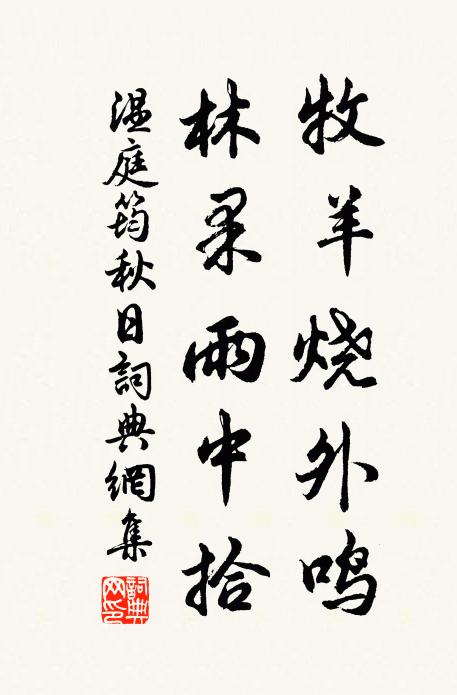 牧羊烧外鸣
林果雨中拾
温庭筠秋日詞典網集
詞典网印